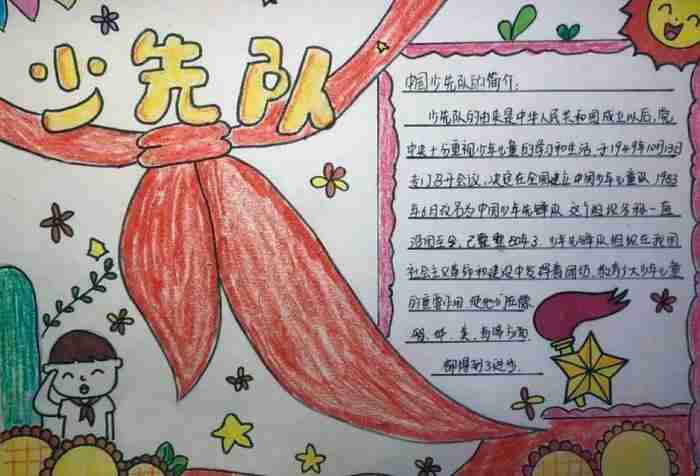 少先队
中国少先队的简介:
少先队的由来是中华人民共和国成立以后,党
中央十分重视少年儿童的学习和生活,于1949年10月13日
专门召开会议,决定在全国建立中国少年儿童队,1953
年6月改名为中国少年先锋队,这个组织名称一直
沿用至今,已 50年了.少年先锋队组织在我国
社会主义革命和建设中发挥着团结、教育广大少年儿童
的重要作用 使他们在德
智、体、美、劳等方面
都得到了进步.